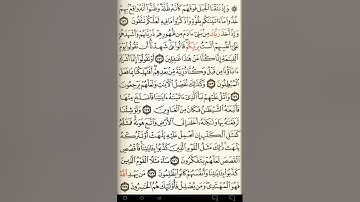 ۞ وَإِذْ نَتَقْنَا ٱلْجَبَلَ فَوْقَهُمْ كَأَنَّهُۥ ظُلَّةٌ وَظَنُّوٓا۟ أَنَّهُۥ وَاقِعٌۢ بِهِمْ
خُذُوا۟ مَآ ءَاتَيْنَٰكُم بِقُوَّةٍ وَٱذْكُرُوا۟ مَا فِيهِ لَعَلَّكُمْ تَتَّقُونَ ١٧١
وَإِذْ أَخَذَ رَبُّكَ مِنۢ بَنِىٓ ءَادَمَ مِن ظُهُورِهِمْ ذُرِّيَّتَهُمْ وَأَشْهَدَهُمْ
عَلَىٰٓ أَنفُسِهِمْ أَلَسْتُ بِرَبِّكُمْ ۖ قَالُوا۟ بَلَىٰ ۛ شَهِدْنَآ ۛ أَن تَقُولُوا۟ يَوْمَ
ٱلْقِيَٰمَةِ إِنَّا كُنَّا عَنْ هَٰذَا غَٰفِلِينَ ١٧٢ أَوْ تَقُولُوٓا۟ إِنَّمَآ أَشْرَكَ
ءَابَآؤُنَا مِن قَبْلُ وَكُنَّا ذُرِّيَّةً مِّنۢ بَعْدِهِمْ ۖ أَفَتُهْلِكُنَا بِمَا فَعَلَ
ٱلْمُبْطِلُونَ ١٧٣ وَكَذَٰلِكَ نُفَصِّلُ ٱلْءَايَٰتِ وَلَعَلَّهُمْ يَرْجِعُونَ
١٧٤ وَٱتْلُ عَلَيْهِمْ نَبَأَ ٱلَّذِىٓ ءَاتَيْنَٰهُ ءَايَٰتِنَا فَٱنسَلَخَ مِنْهَا
فَأَتْبَعَهُ ٱلشَّيْطَٰنُ فَكَانَ مِنَ ٱلْغَاوِينَ ١٧٥ وَلَوْ شِئْنَا
لَرَفَعْنَٰهُ بِهَا وَلَٰكِنَّهُۥٓ أَخْلَدَ إِلَى ٱلْأَرْضِ وَٱتَّبَعَ هَوَىٰهُ ۚ فَمَثَلُهُۥ
كَمَثَلِ ٱلْكَلْبِ إِن تَحْمِلْ عَلَيْهِ يَلْهَثْ أَوْ تَتْرُكْهُ
يَلْهَث ۚ ذَّٰلِكَ مَثَلُ ٱلْقَوْمِ ٱلَّذِينَ كَذَّبُوا۟ بِـَٔايَٰتِنَا ۚ فَٱقْصُصِ
ٱلْقَصَصَ لَعَلَّهُمْ يَتَفَكَّرُونَ ١٧٦ سَآءَ مَثَلًا ٱلْقَوْمُ ٱلَّذِينَ
كَذَّبُوا۟ بِـَٔايَٰتِنَا وَأَنفُسَهُمْ كَانُوا۟ يَظْلِمُونَ ١٧٧ مَن يَهْدِ ٱللَّهُ
فَهُوَ ٱلْمُهْتَدِى ۖ وَمَن يُضْلِلْ فَأُو۟لَٰٓئِكَ هُمُ ٱلْخَٰسِرُونَ ١٧٨